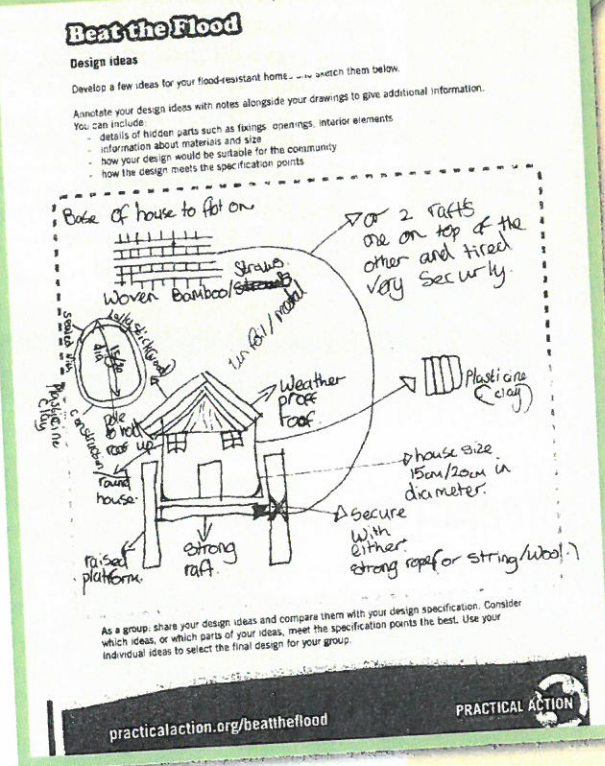 Beat the Flood
Design ideas
Develop a few ideas for your flood-resistant home and sketch them below.
Annotate your design ideas with notes alongside your drawings to give additional information.
You can include:
- details of hidden parts such as fixings, openings, interior elements
- information about materials and size
- how your design would be suitable for the community
- how the design meets the specification points
Base of house to flot on
Woven Bamboo/
Straws.
or 2 rafts
one on top of the
other and tired
very securly.
tin foil/metal
lolly stick (wood)
sealed with
plasticine
clay
15/20
dia
construction
round
house.
pole
to roll
roof up
weather
proff
roof.
Plasticine
(clay)
house size
15cm/20cm in
diameter.
Secure
with
either.
strong rope (or string/wool.)
raised
platform.
strong
raft.
As a group: share your design ideas and compare them with your design specification. Consider
which ideas, or which parts of your ideas, meet the specification points the best. Use your
individual ideas to select the final design for your group.
practicalaction.org/beattheflood
PRACTICAL ACTION